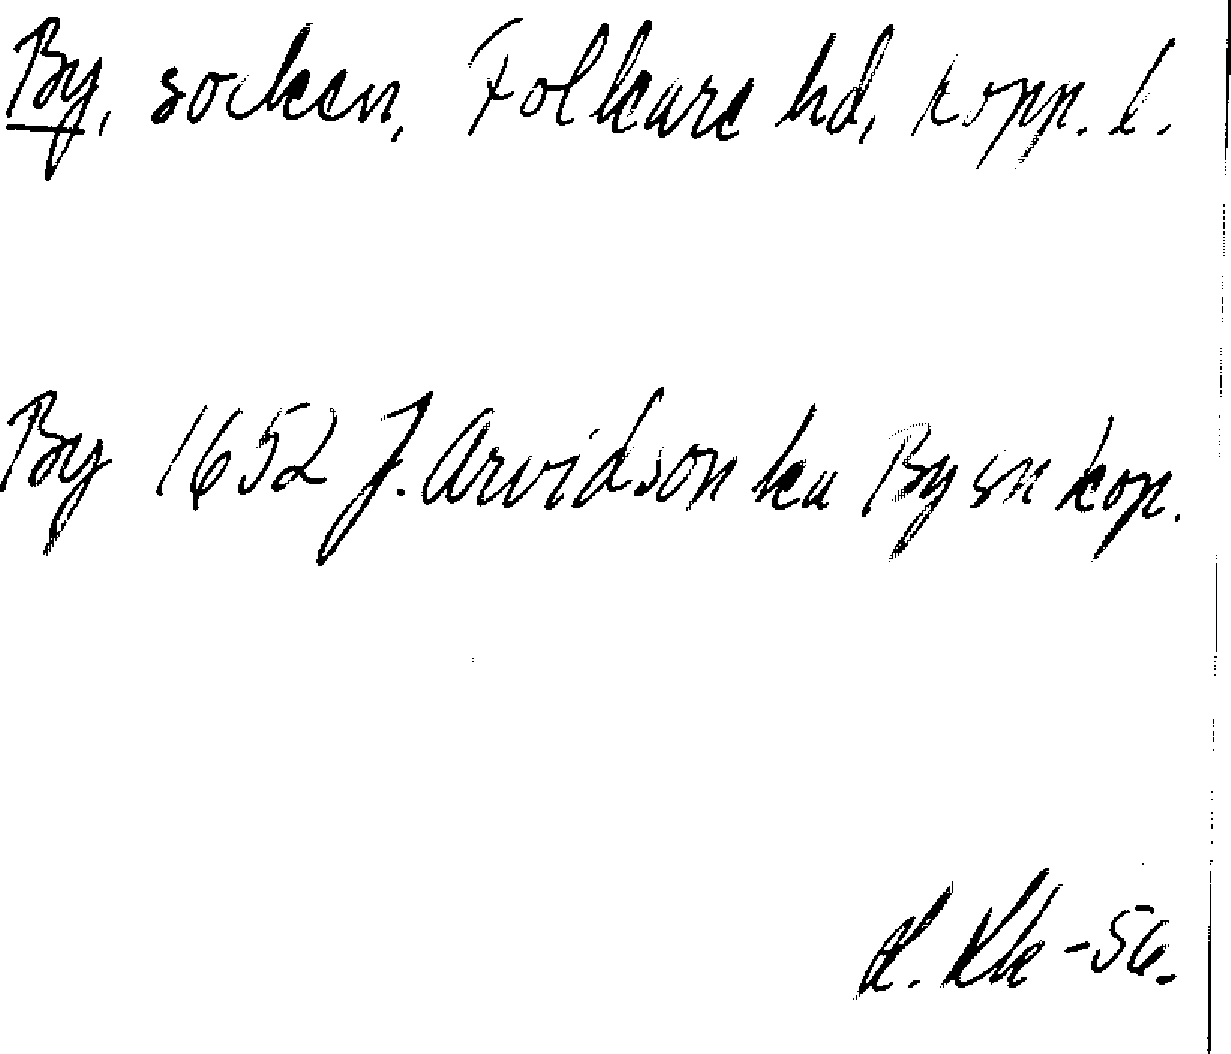 By, socken, Folkare hd, Kopp. l.
By 1652 J. Arvidson ka By sn kop.
-56.